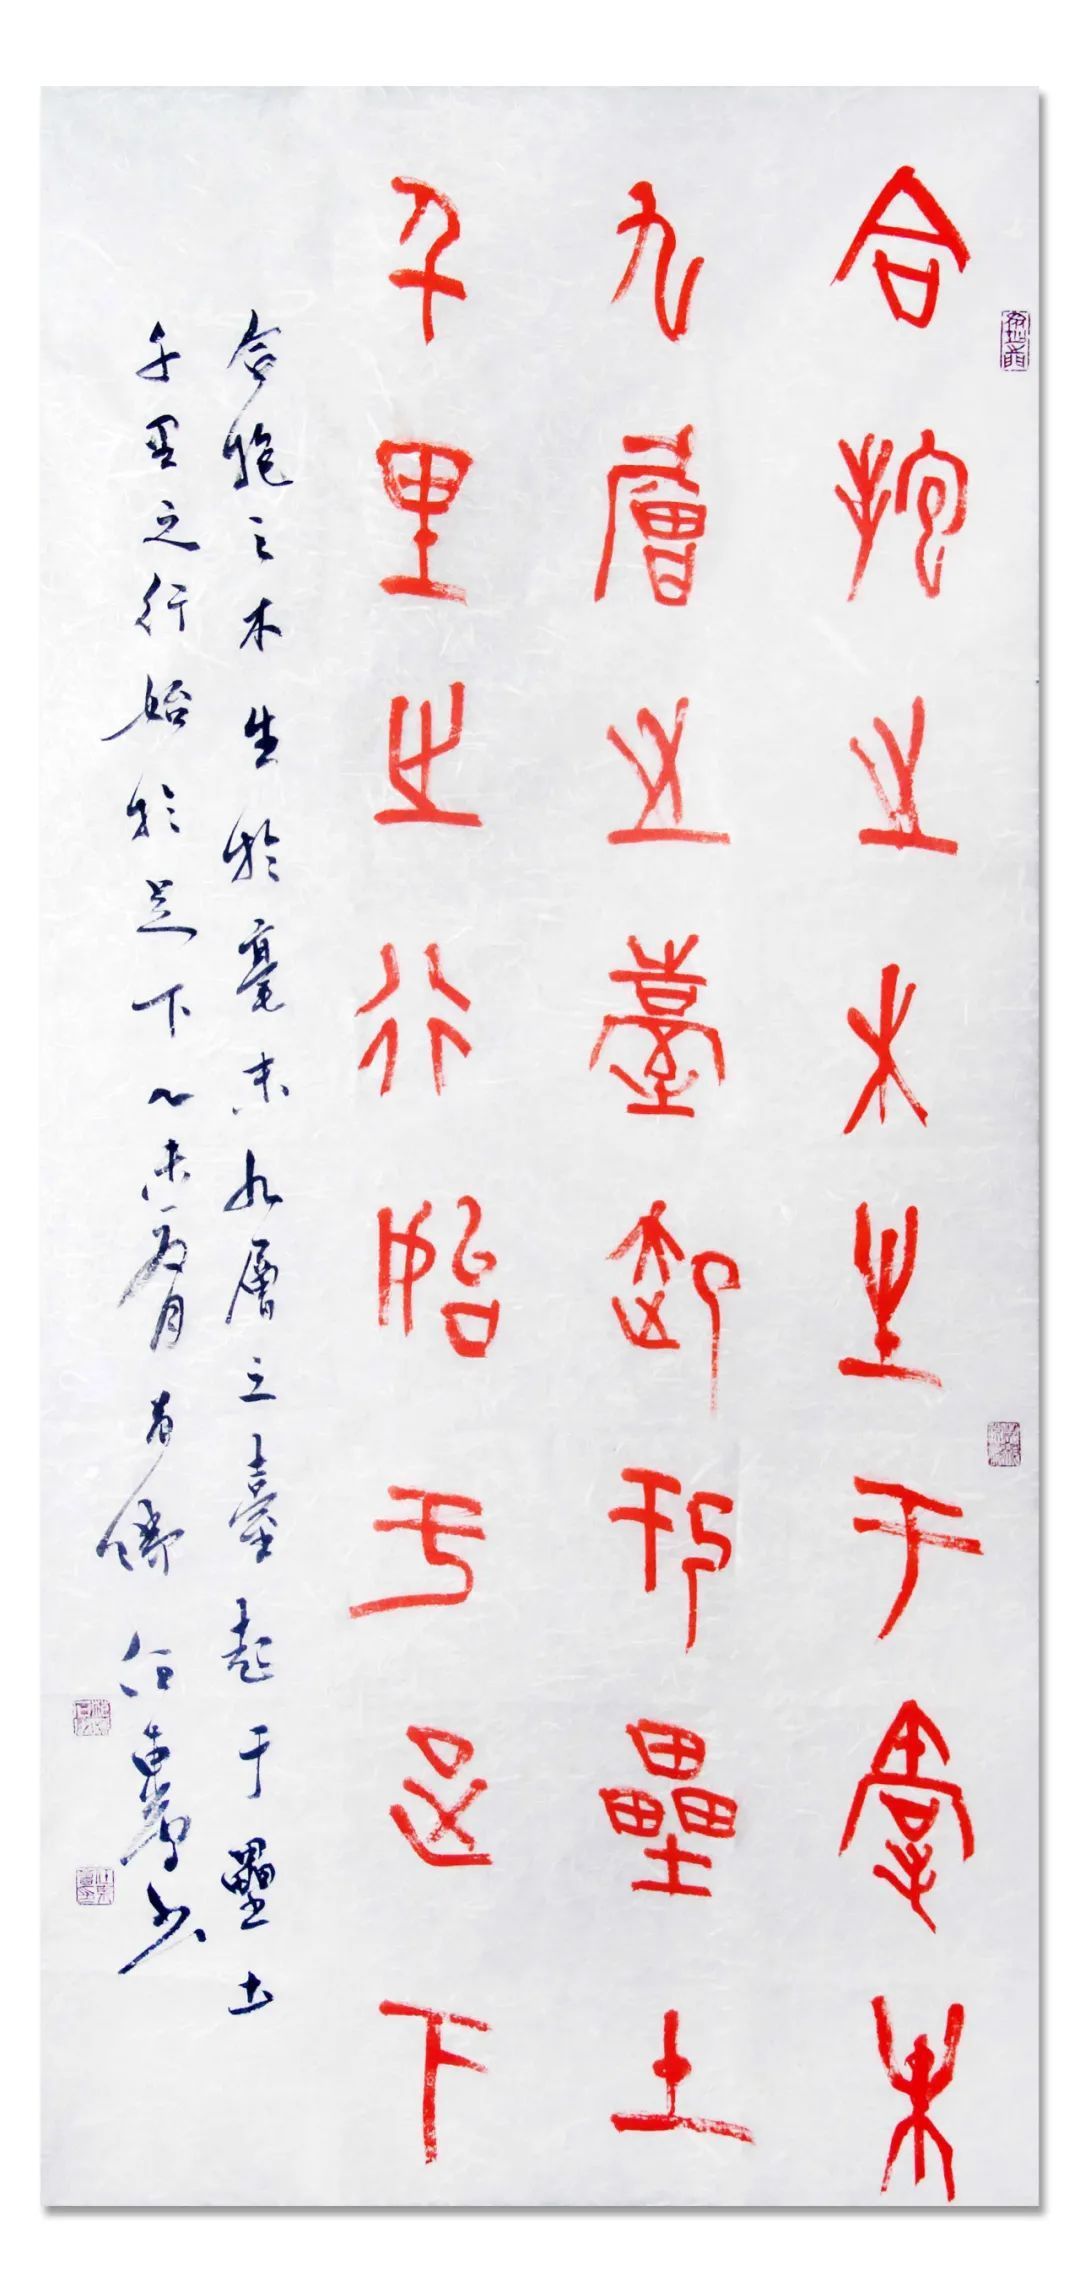 合抱之木生于毫末
九層之臺起于壘土
千里之行始于足下
合抱之木生於毫末九層之臺起于壘土
千里之行始於足下乙未夏月